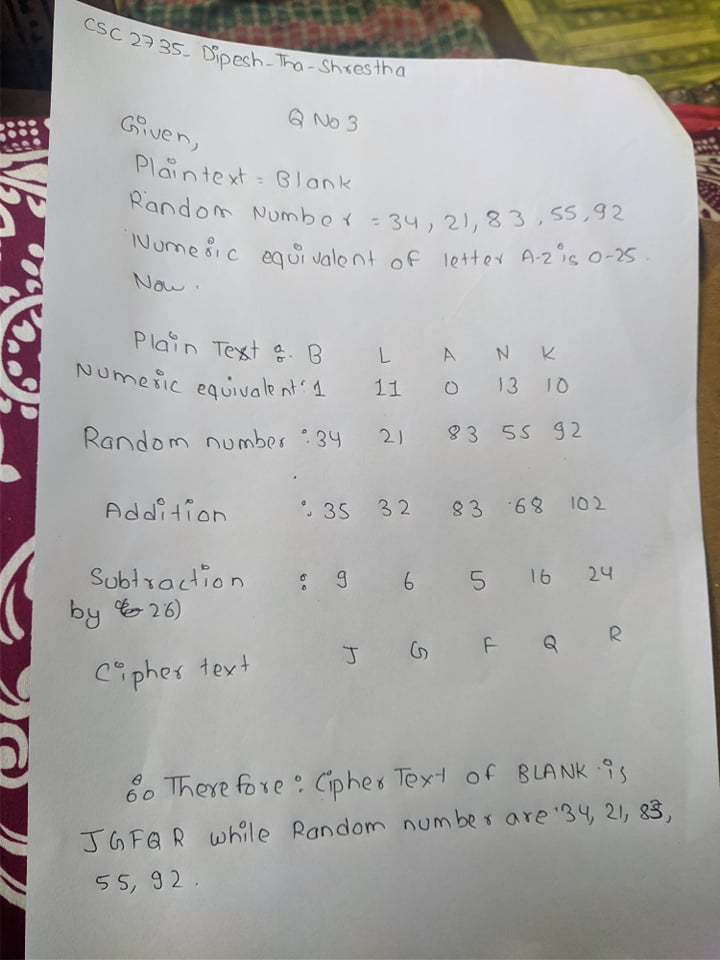 CSC 2735- Dipesh-Tha-Shrestha
Q No 3
Given,
Plaintext = Blank
Random Number = 34, 21, 83, 55, 92
Numeric equivalent of letter A-Z is 0-25.
Now.
Plain Text : B L A N K
Numeric equivalent : 1 11 0 13 10
Random number : 34 21 83 55 92
Addition : 35 32 83 68 102
Subtraction : 9 6 5 16 24
by 26)
Cipher text J G F Q R
Therefore : Cipher Text of BLANK is
JGFQR while Random number are 34, 21, 83,
55, 92.